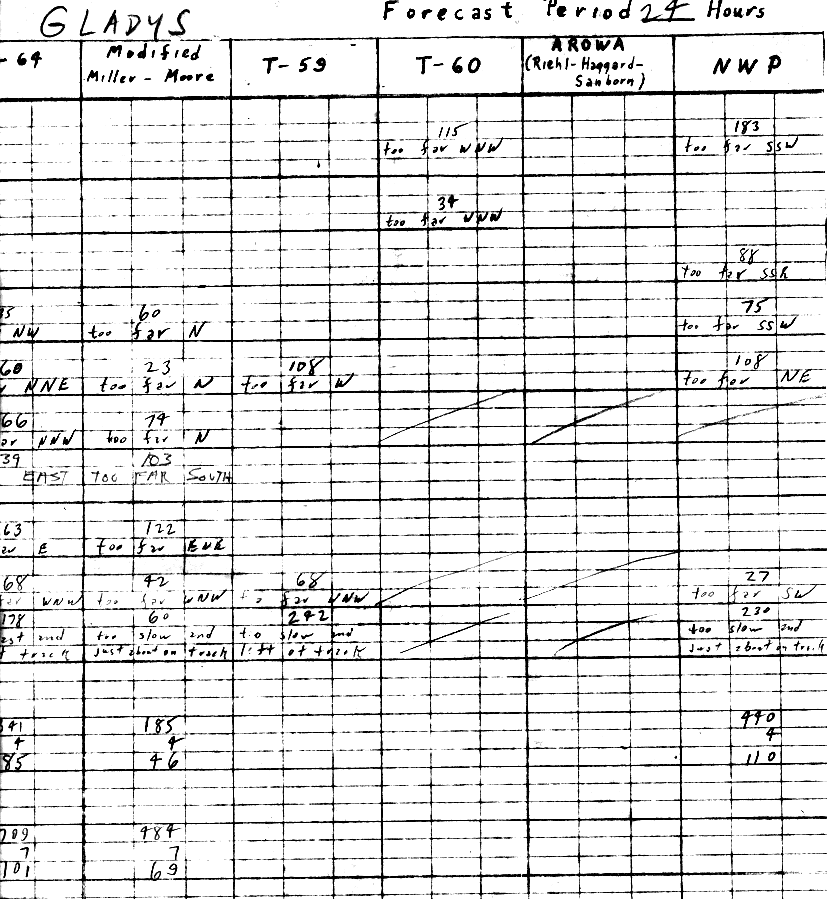 GLADYS Forecast Period 24 Hours
-64 Modified Miller-Moore T-59 T-60 AROWA (Riehl-Haggard-Sanborn) NWP
115 183
too far WNW too far SSW
34
too far WNW
88
too far SSE
60 75
NW too far N too far SSW
60 23 108 108
NNE too far N too far W too far NE
66 74
far NNW too far N
39 103
EAST TOO FAR SOUTH
63 122
far E too far ENE
68 42 68 27
far WNW too far WNW too far WNW too far SW
178 60 242 230
and too slow and too slow and too slow and
of track just about on track left of track just about on track
341 185 440
4 4 4
85 46 110
709 484
7 7
101 69